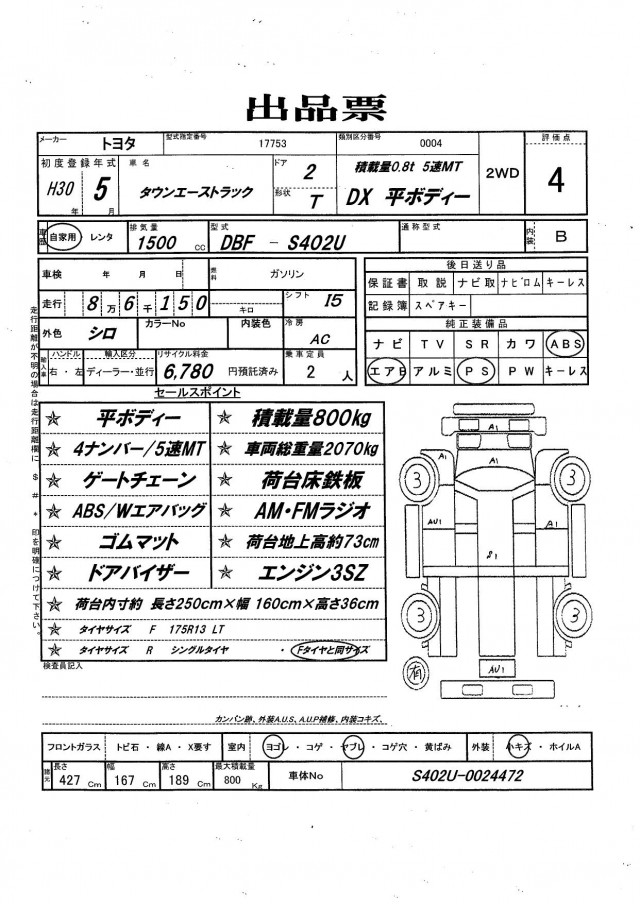 出品票
メーカー トヨタ 型式指定番号 17753 類別区分番号 0004 2WD 評価点 4
初度登録年式 H30 年 5 月 車名 タウンエーストラック ドア 2 形状 T 積載量0.8t 5速MT DX 平ボディー
車歴 自家用 レンタ 排気量 1500 cc 型式 DBF - S402U 通称型式 内装 B
車検 年 月 日 燃料 ガソリン 後日送り品
保証書 取説 ナビ取 ナビロム キーレス
走行 8 万 6 千 1 5 0 キロ シフト I5 記録簿 スペアキー
外色 シロ カラーNo 内装色 冷房 AC 純正装備品
ナビ TV SR カワ ABS
輸入車 ハンドル 右・左 輸入区分 ディーラー・並行 リサイクル料金 6,780 円預託済み 乗車定員 2 人 エアB アルミ PS PW キーレス
セールスポイント
☆ 平ボディー ☆ 積載量800kg
☆ 4ナンバー/5速MT ☆ 車両総重量2070kg
☆ ゲートチェーン ☆ 荷台床鉄板
☆ ABS/Wエアバッグ ☆ AM・FMラジオ
☆ ゴムマット ☆ 荷台地上高約73cm
☆ ドアバイザー ☆ エンジン3SZ
☆ 荷台内寸約 長さ250cm×幅 160cm×高さ36cm
☆ タイヤサイズ F 175R13 LT
☆ タイヤサイズ R シングルタイヤ ・ Fタイヤと同サイズ
走行距離が不明の場合は走行距離欄に $ # * 印を明確につけて下さい。
A1
A1
3 3
AU1 A1
S1
3 3
有 AU1
検査員記入
カンバン跡、外装A.U.S、A.U.P補修、内装コキズ、
フロントガラス トビ石 ・ 線A ・ X要す 室内 ヨゴレ ・ コゲ ・ ヤブレ ・ コゲ穴 ・ 黄ばみ 外装 小キズ ・ ホイルA
諸元 長さ 427 Cm 幅 167 Cm 高さ 189 Cm 最大積載量 800 Kg 車体No S402U-0024472